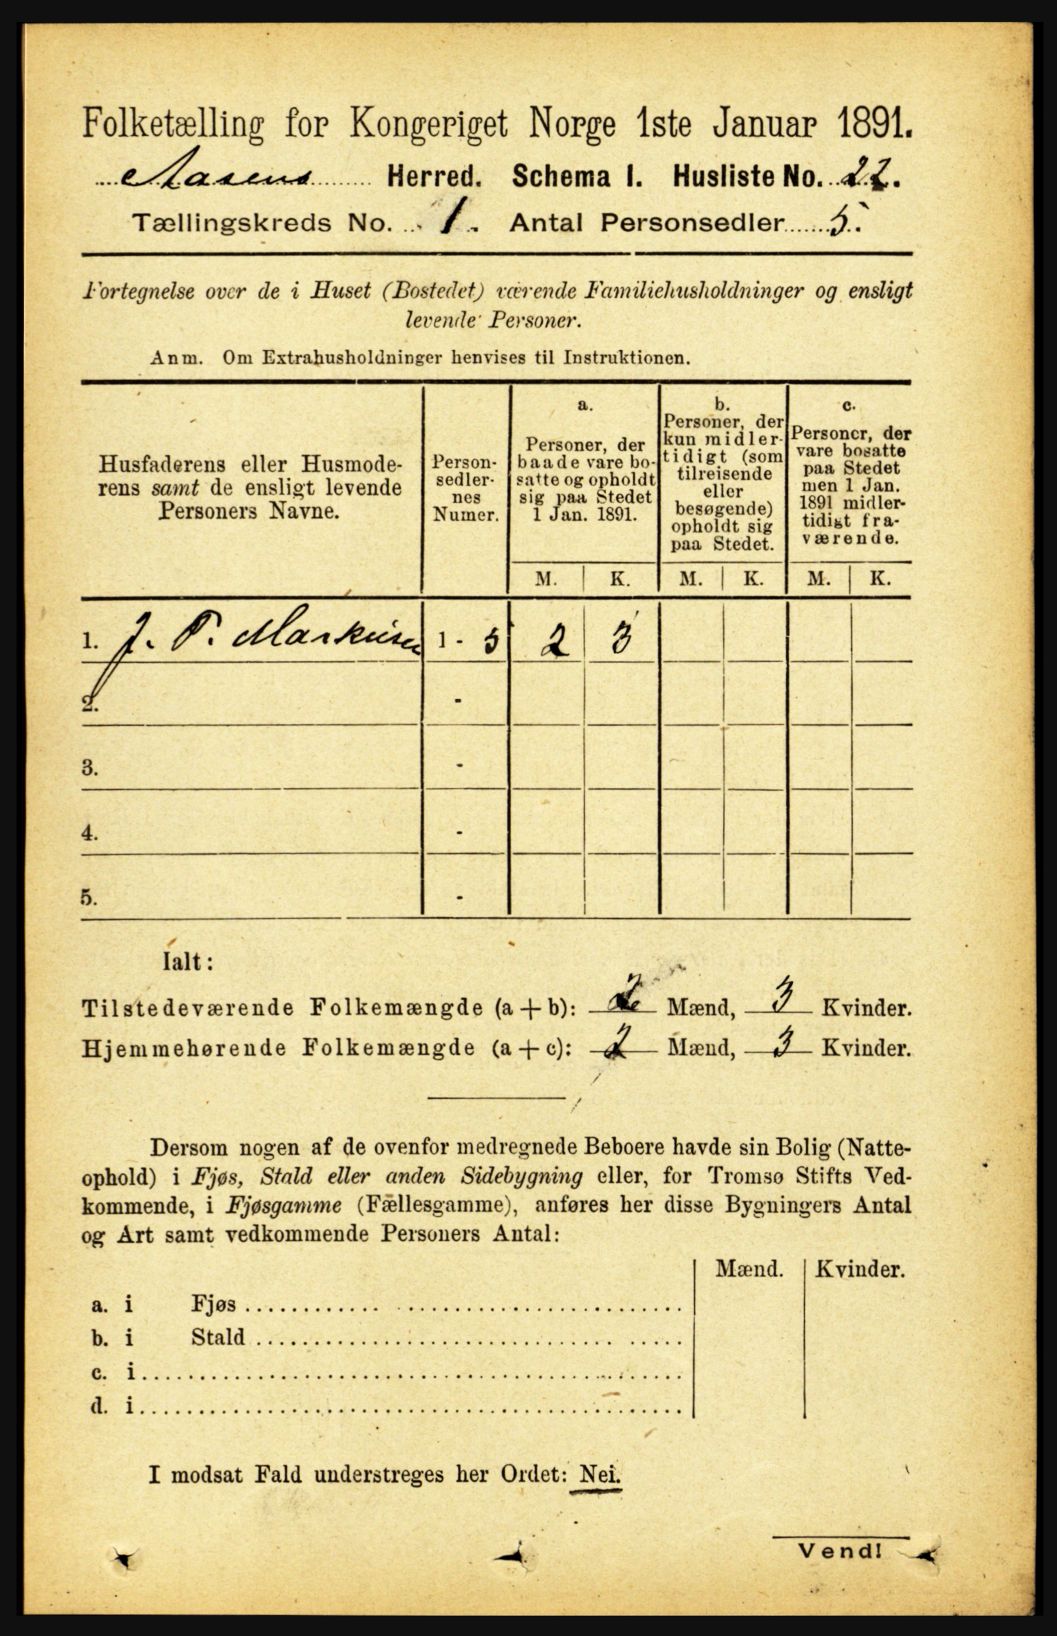 Folketælling for Kongeriget Norge 1ste Januar 1891.
Aasens Herred. Schema I. Husliste No. 22.
Tællingskreds No. 1. Antal Personsedler 5.
Fortegnelse over de i Huset (Bostedet) værende Familiehusholdninger og ensligt
levende Personer.
Anm. Om Extrahusholdninger henvises til Instruktionen.
Husfaderens eller Husmode-
rens samt de ensligt levende
Personers Navne.
Person-
sedler-
nes
Numer.
a.
Personer, der
baade vare bo-
satte og opholdt
sig paa Stedet
1 Jan. 1891.
b.
Personer, der
kun midler-
tidigt (som
tilreisende
eller
besøgende)
opholdt sig
paa Stedet.
c.
Personer, der
vare bosatte
paa Stedet
men 1 Jan.
1891 midler-
tidigt fra-
værende.
M. K. M. K. M. K.
1. J. P. Markusen 1 - 5 2 3
2. -
3. -
4. -
5. -
Ialt:
Tilstedeværende Folkemængde (a + b): 2 Mænd, 3 Kvinder.
Hjemmehørende Folkemængde (a + c): 2 Mænd, 3 Kvinder.
Dersom nogen af de ovenfor medregnede Beboere havde sin Bolig (Natte-
ophold) i Fjøs, Stald eller anden Sidebygning eller, for Tromsø Stifts Ved-
kommende, i Fjøsgamme (Fællesgamme), anføres her disse Bygningers Antal
og Art samt vedkommende Personers Antal:
Mænd. Kvinder.
a. i Fjøs
b. i Stald
c. i
d. i
I modsat Fald understreges her Ordet: Nei.
Vend!